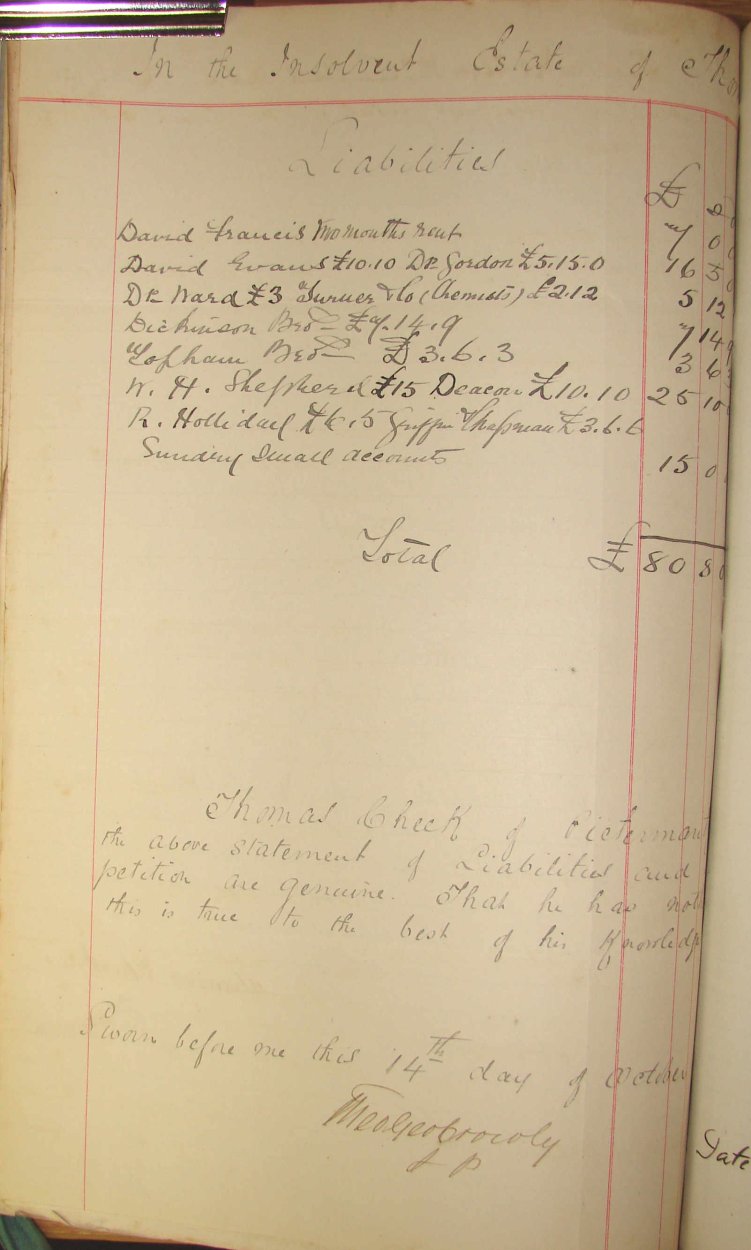 In the Insolvent Estate of Tho
Liabilities
£ s
David Francis Two months rent 7 0 0
David Evans £10.10 Dr. Gordon £5.15.0 16 5 0
Dr. Ward £3 Turner & Co (Chemists) £2.12 5 12
Dickinson Bros £7.14.9 7 14 9
Topham Bros £3.6.3 3 6 3
W. H. Shepherd £15 Deacon £10.10 25 10
R. Holliday £6.5 Griffin Chapman £3.6.6
Sundry Small accounts 15 0
Total £ 80 8 0
Thomas Cheek of Pietermarit
the above statement of Liabilities and
petition are genuine. That he has not
this is true to the best of his Knowledge
Sworn before me this 14th day of October
JP
Date